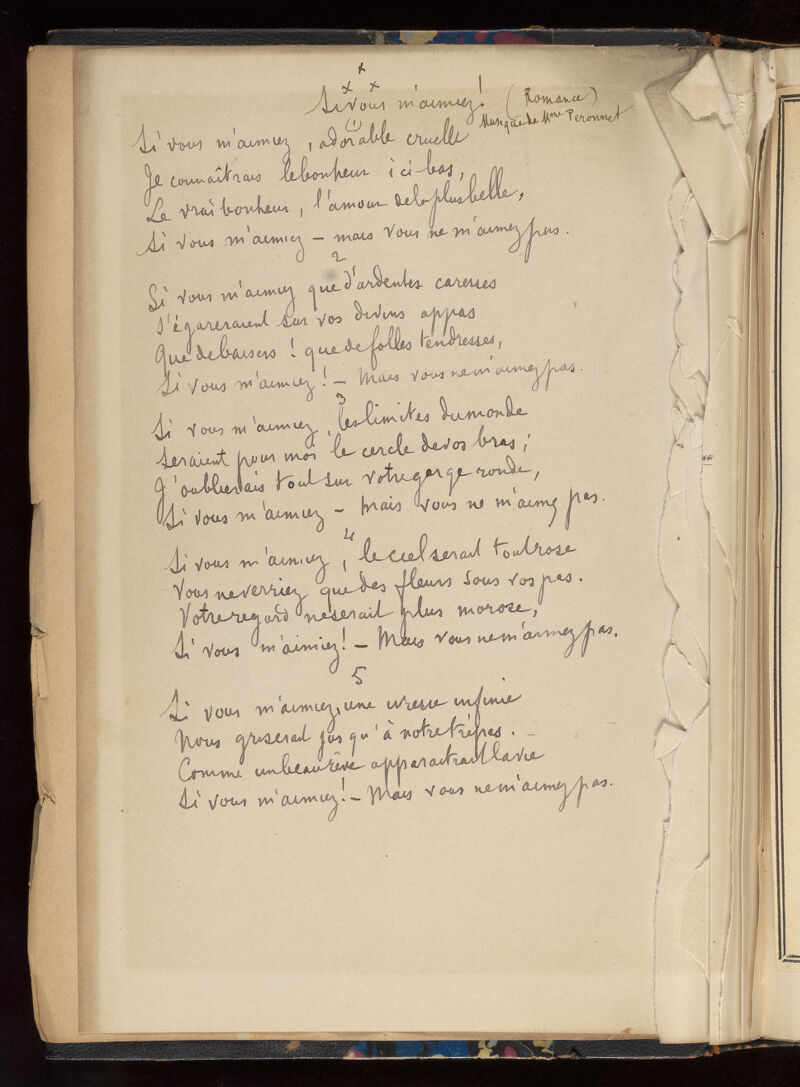 x x x
Si vous m'aimiez! (Romance)
Musique de Mme Peronnet
1
Si vous m'aimiez, adorable cruelle
Je connaîtrais le bonheur ici-bas,
Le vrai bonheur, l'amour de la plus belle,
Si vous m'aimiez – mais vous ne m'aimez pas.
2
Si vous m'aimiez que d'ardentes caresses
S'égareraient sur vos divins appas
Que de baisers ! que de folles tendresses,
Si vous m'aimiez ! – Mais vous ne m'aimez pas.
3
Si vous m'aimiez, les limites du monde
Seraient pour moi le cercle de vos bras ;
J'oublierais tout sur votre gorge ronde,
Si vous m'aimiez – Mais vous ne m'aimez pas.
4
Si vous m'aimiez, le ciel serait tout rose
Vous ne verriez que des fleurs sous vos pas.
Votre regard ne serait plus morose,
Si vous m'aimiez! – Mais vous ne m'aimez pas.
5
Si vous m'aimiez, une ivresse infinie
Nous griserait jusqu'à notre trépas. –
Comme un beau rêve apparaitrait la vie
Si vous m'aimiez! – Mais vous ne m'aimez pas.